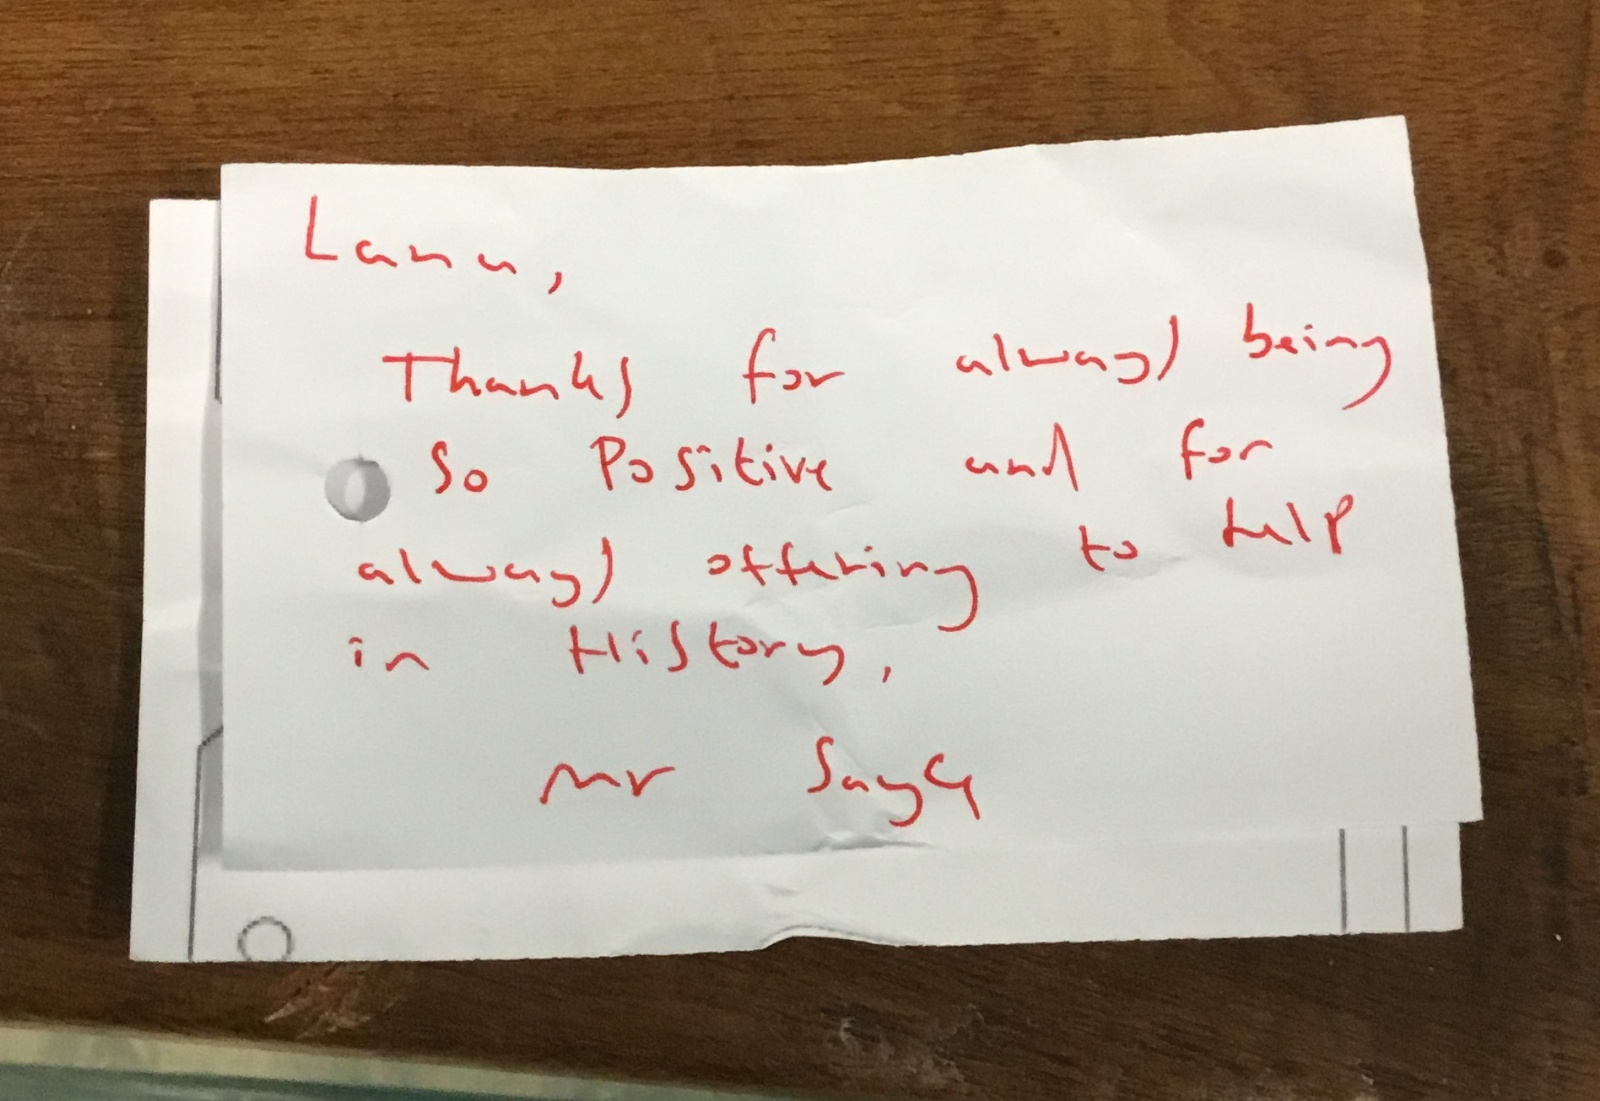 Lana,
Thanks for always being
so Positive and for
always offering to help
in History,
Mr